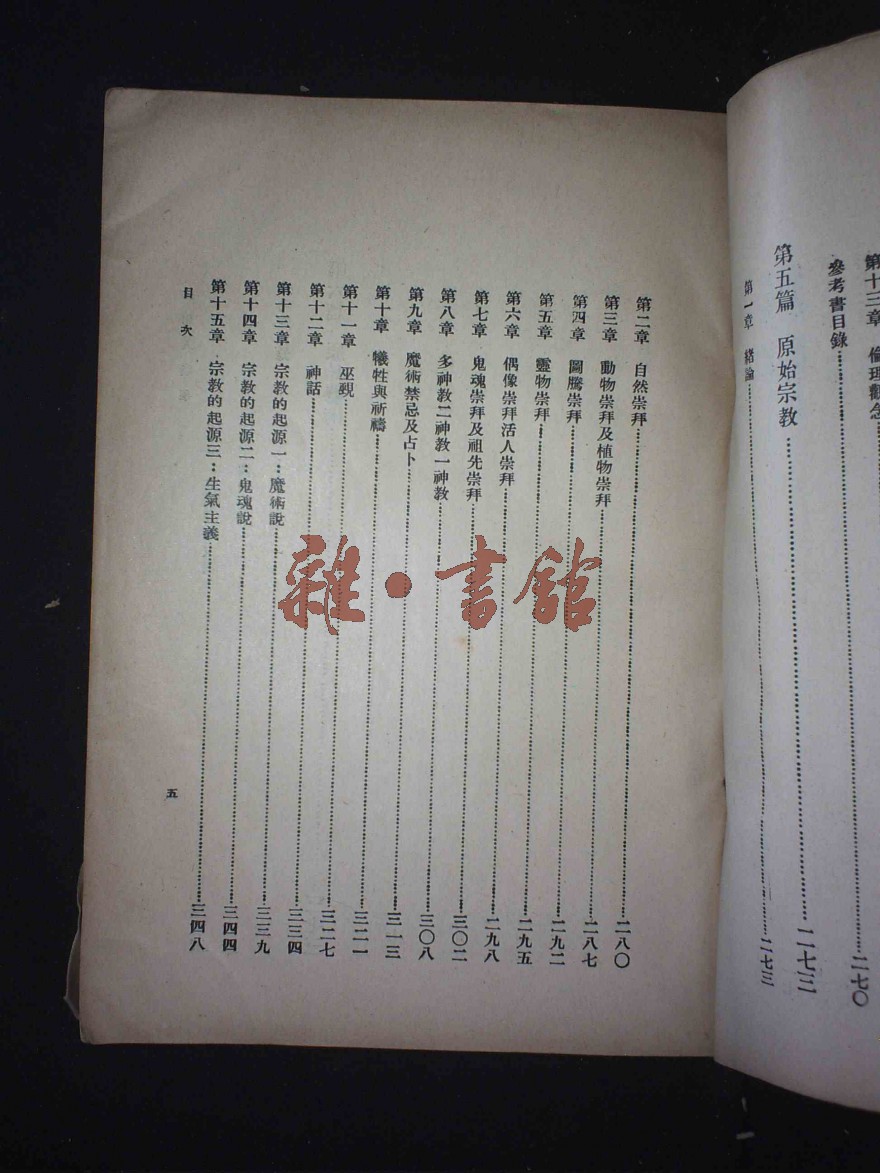 第十三章 倫理觀念……二七〇
參考書目錄……
第五篇 原始宗教……二七三
第一章 緒論……二七三
第二章 自然崇拜……二八〇
第三章 動物崇拜及植物崇拜……二八七
第四章 圖騰崇拜……二九二
第五章 靈物崇拜……二九五
第六章 偶像崇拜活人崇拜……二九八
第七章 鬼魂崇拜及祖先崇拜……三〇二
第八章 多神教二神教一神教……三〇八
第九章 魔術禁忌及占卜……三一三
第十章 犧牲與祈禱……三二一
第十一章 巫覡……三二七
第十二章 神話……三三四
第十三章 宗教的起源一：魔術說……三三九
第十四章 宗教的起源二：鬼魂說……三四四
第十五章 宗教的起源三：生氣主義……三四八
目次
五
雜·書館